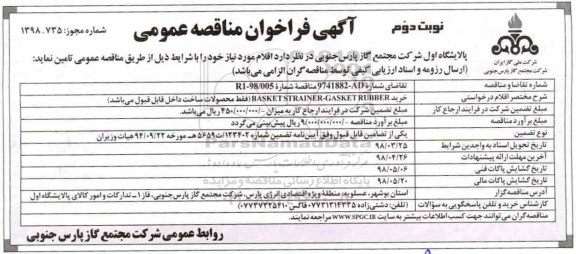 نوبت دوم
آگهی فراخوان مناقصه عمومی
شماره مجوز: ۱۳۹۸.۷۳۵
شرکت ملی گاز ایران
شرکت مجتمع گاز پارس جنوبی
پالایشگاه اول شرکت مجتمع گاز پارس جنوبی در نظر دارد اقلام مورد نیاز خود را با شرایط ذیل از طریق مناقصه عمومی تامین نماید:
(ارسال رزومه و اسناد ارزیابی کیفی توسط مناقصه گران الزامی می‌باشد)
شماره تقاضا و مناقصه تقاضای شماره 9741882-AD مناقصه شماره R1-98/005
شرح مختصر اقلام درخواستی خرید BASKET STRAINER-GASKET RUBBER (فقط محصولات ساخت داخل قابل قبول می‌باشد)
مبلغ تضمین شرکت در فرایند ارجاع کار مبلغ تضمین شرکت در فرایند ارجاع کار به میزان ۴۵۰/۰۰۰/۰۰۰/- ریال می‌باشد.
مبلغ برآورد مناقصه مبلغ برآورد مناقصه ۹/۰۰۰/۰۰۰/۰۰۰/- ریال پیش‌بینی می‌گردد
نوع تضمین یکی از تضامین قابل قبول وفق آیین‌نامه تضمین شماره ۱۲۳۴۰۲/ت۵۶۵۹ هـ مورخه ۹۴/۰۹/۲۲ هیات وزیران
تاریخ تحویل اسناد به واجدین شرایط ۹۸/۰۳/۲۵
آخرین مهلت ارائه پیشنهادات ۹۸/۰۴/۲۶
تاریخ گشایش پاکات فنی ۹۸/۰۵/۰۶
تاریخ گشایش پاکات مالی ۹۸/۰۵/۲۰
آدرس مناقصه گزار استان بوشهر، عسلویه، منطقه ویژه اقتصادی انرژی پارس، شرکت مجتمع گاز پارس‌جنوبی، فاز ۱- تدارکات و امور کالای پالایشگاه اول
کارشناس خرید و تلفن پاسخگویی به سؤالات (تلفن: دشتی‌زاده ۰۷۷۳۱۳۱۴۳۳۵ فاکس: ۰۷۷۳۷۳۲۵۴۱۰)
مناقصه‌گران می‌توانند جهت کسب اطلاعات بیشتر به سایت WWW.SPGC.IR مراجعه نمایند.
روابط عمومی شرکت مجتمع گاز پارس جنوبی